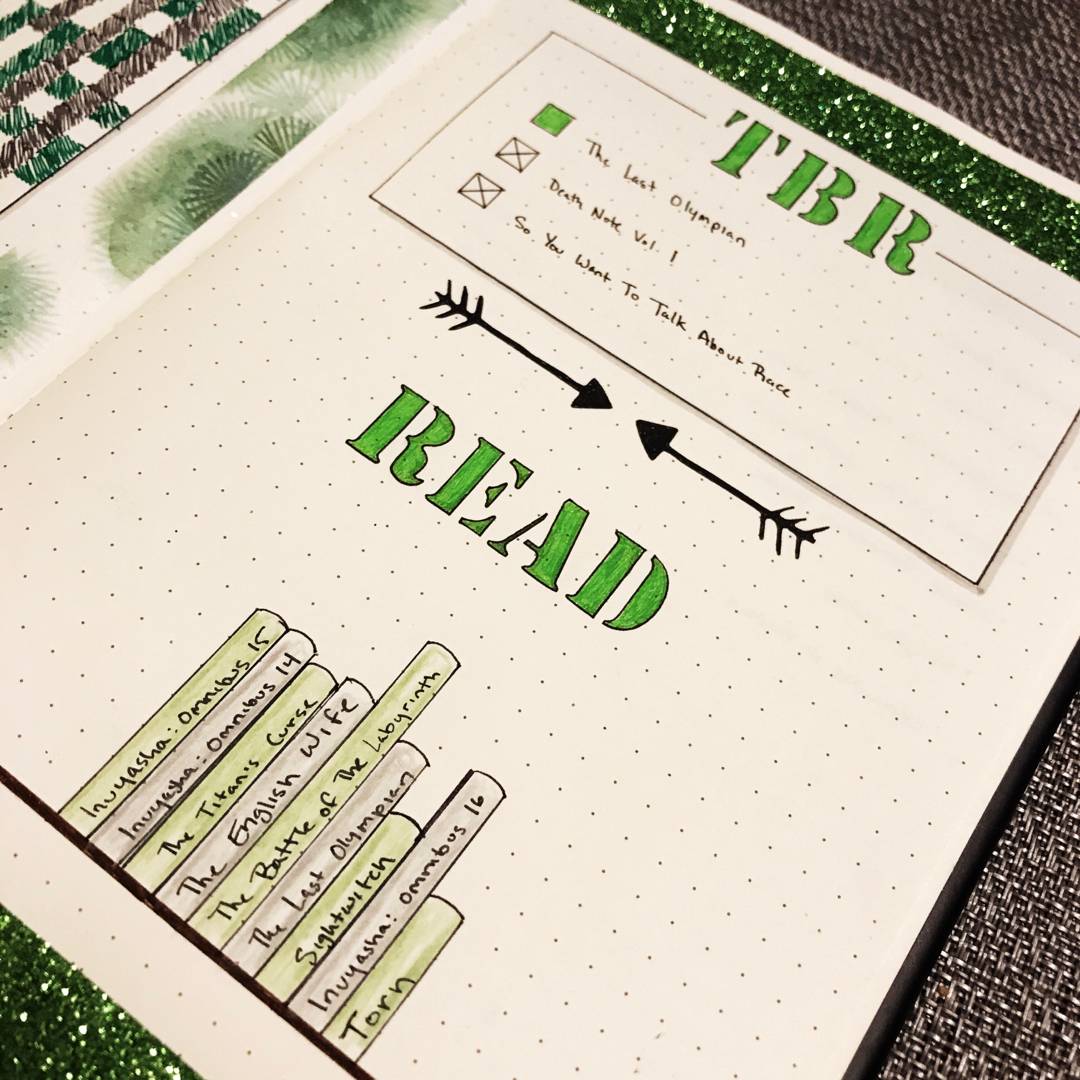 TBR
The Last Olympian
Death Note Vol. 1
So You Want To Talk About Race
READ
Inuyasha: Omnibus 15
Inuyasha: Omnibus 14
The Titan's Curse
The English Wife
The Battle of The Labyrinth
The Last Olympian
Sightwitch
Inuyasha: Omnibus 16
Torn